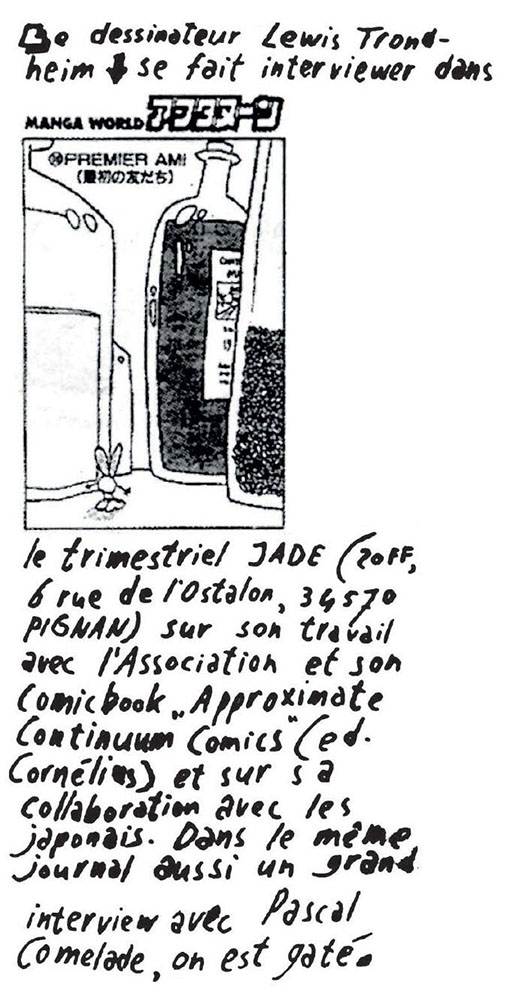 Le dessinateur Lewis Trond-
heim se fait interviewer dans
MANGA WORLD アフタヌーン
PREMIER AMI
(最初の友だち)
le trimestriel JADE (20FF,
6 rue de l'Ostalon, 34570
PIGNAN) sur son travail
avec l'Association et son
Comicbook „Approximate
Continuum Comics" (ed.
Cornélius) et sur sa
collaboration avec les
japonais. Dans le même
journal aussi un grand
interview avec Pascal
Comelade, on est gaté.